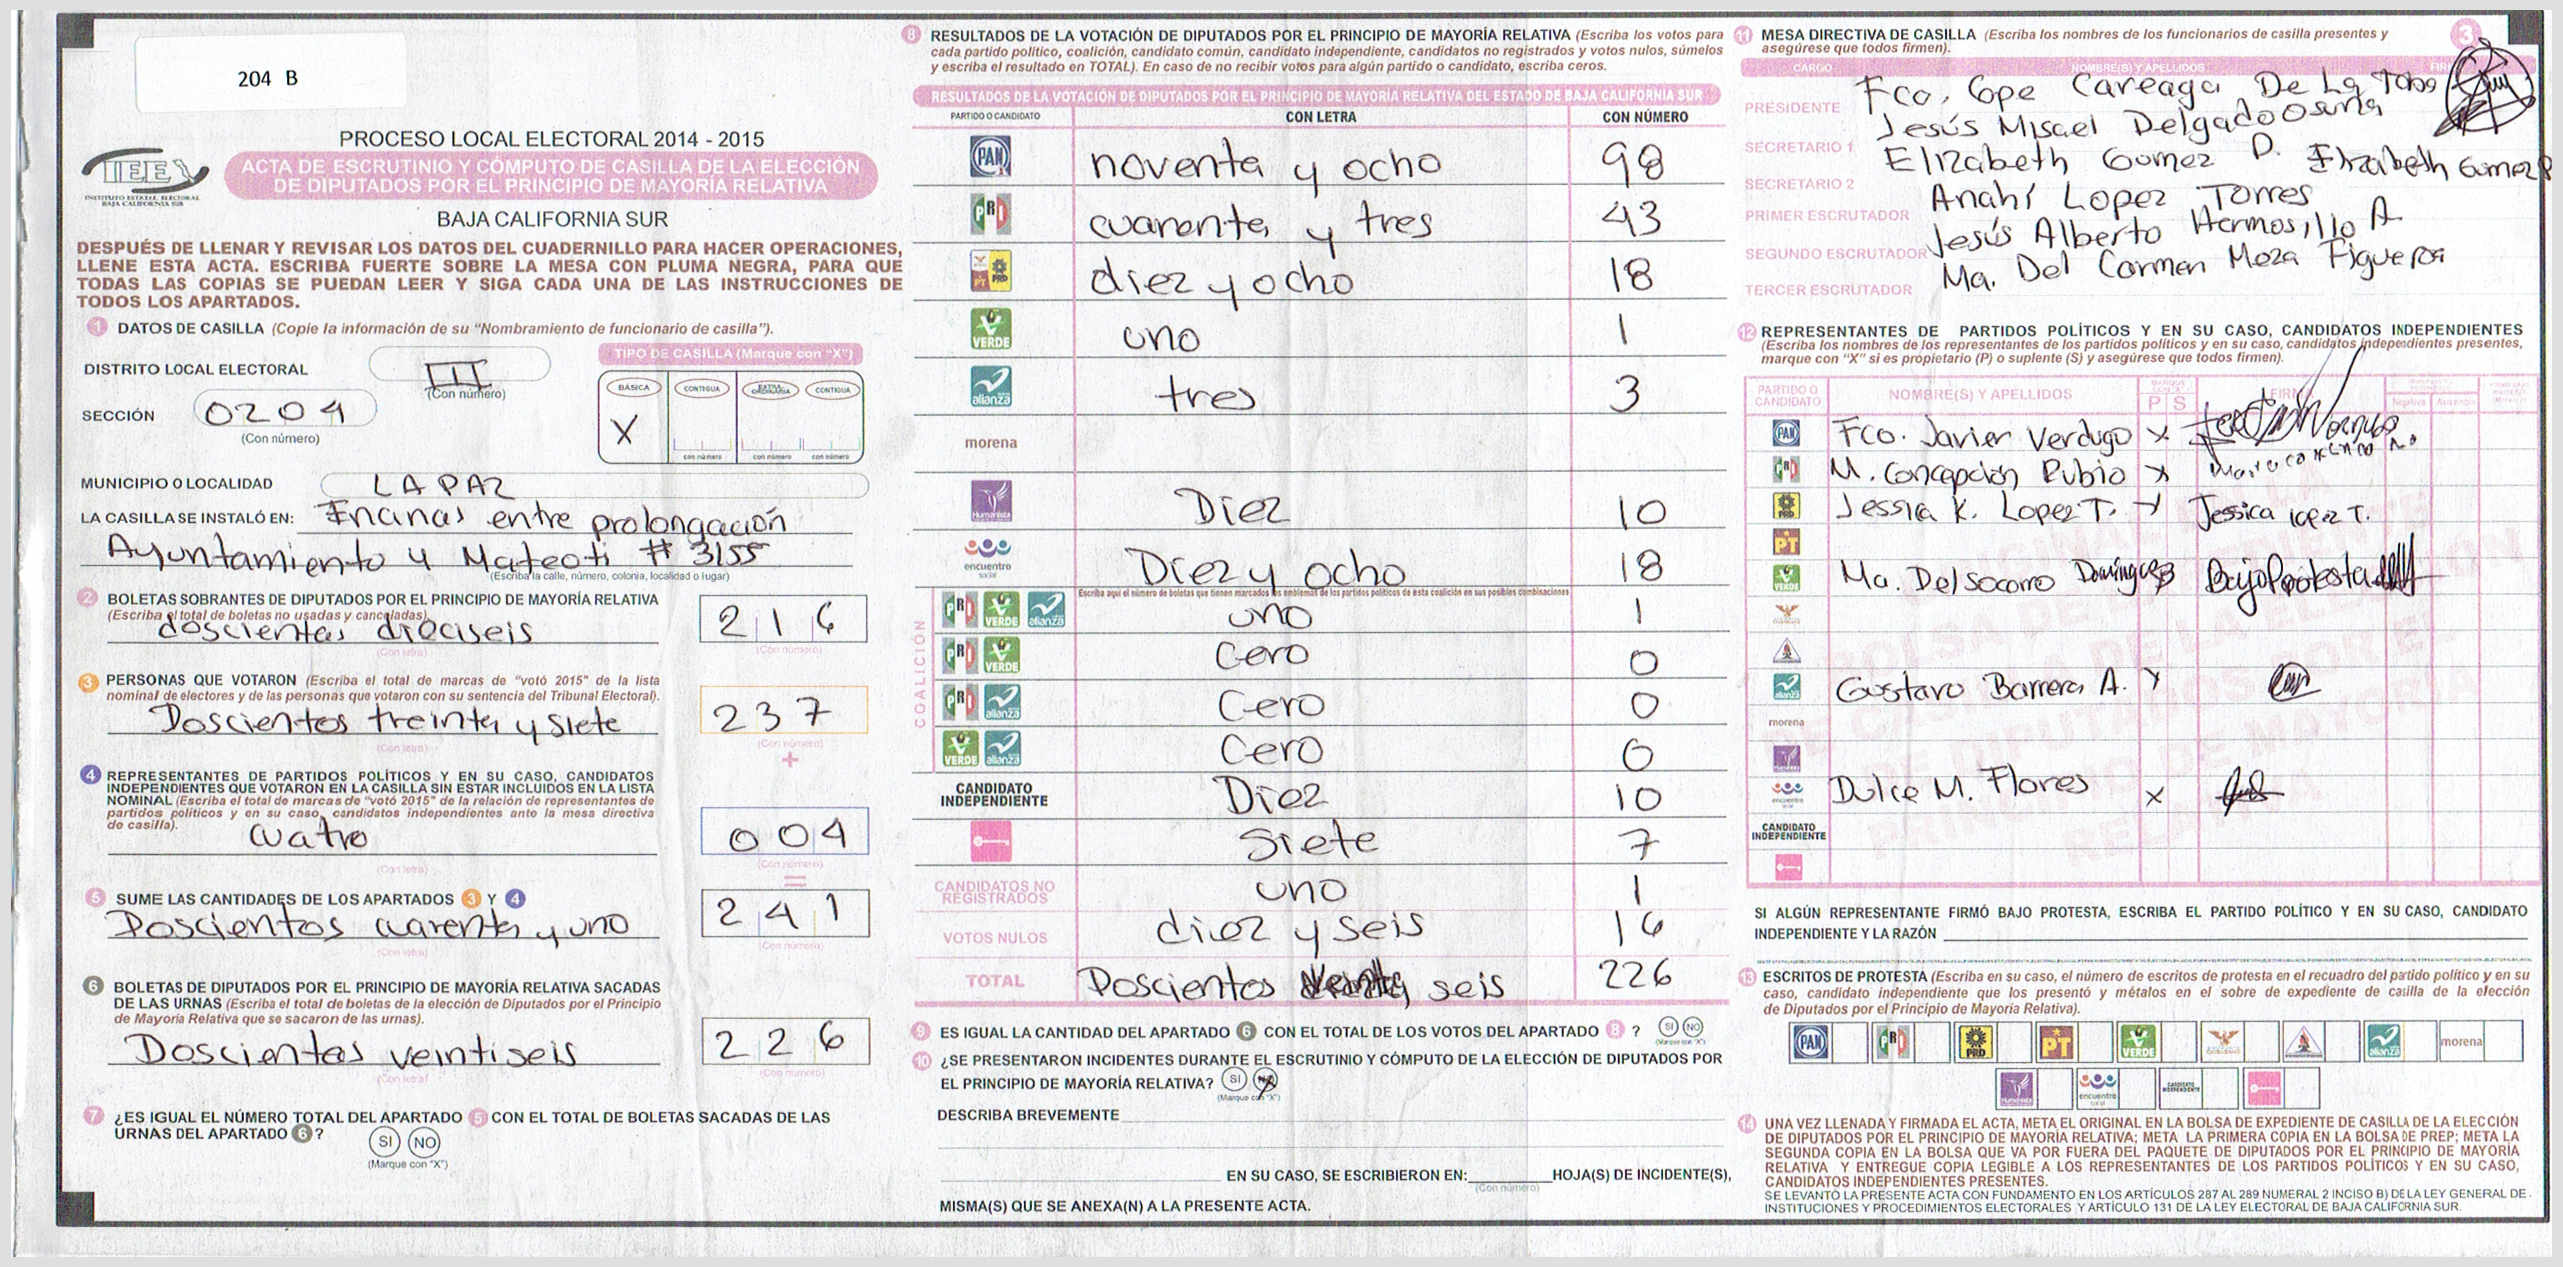 204 B
IEE
INSTITUTO ESTATAL ELECTORAL
BAJA CALIFORNIA SUR
PROCESO LOCAL ELECTORAL 2014 - 2015
ACTA DE ESCRUTINIO Y CÓMPUTO DE CASILLA DE LA ELECCIÓN
DE DIPUTADOS POR EL PRINCIPIO DE MAYORÍA RELATIVA
BAJA CALIFORNIA SUR
DESPUÉS DE LLENAR Y REVISAR LOS DATOS DEL CUADERNILLO PARA HACER OPERACIONES,
LLENE ESTA ACTA. ESCRIBA FUERTE SOBRE LA MESA CON PLUMA NEGRA, PARA QUE
TODAS LAS COPIAS SE PUEDAN LEER Y SIGA CADA UNA DE LAS INSTRUCCIONES DE
TODOS LOS APARTADOS.
1 DATOS DE CASILLA (Copie la información de su "Nombramiento de funcionario de casilla").
DISTRITO LOCAL ELECTORAL III
(Con número)
SECCIÓN 0204
(Con número)
TIPO DE CASILLA (Marque con "X")
BÁSICA CONTIGUA EXTRAORDINARIA CONTIGUA
X
con número con número con número
MUNICIPIO O LOCALIDAD LA PAZ
LA CASILLA SE INSTALÓ EN: entre prolongación
Ayuntamiento y Mateoti # 3155
(Escriba la calle, número, colonia, localidad o lugar)
2 BOLETAS SOBRANTES DE DIPUTADOS POR EL PRINCIPIO DE MAYORÍA RELATIVA
(Escriba el total de boletas no usadas y canceladas).
doscientas dieciseis 216
(Con letra) (Con número)
3 PERSONAS QUE VOTARON (Escriba el total de marcas de "votó 2015" de la lista
nominal de electores y de las personas que votaron con su sentencia del Tribunal Electoral).
Doscientos treinta y siete 237
(Con letra) (Con número)
+
4 REPRESENTANTES DE PARTIDOS POLÍTICOS Y EN SU CASO, CANDIDATOS
INDEPENDIENTES QUE VOTARON EN LA CASILLA SIN ESTAR INCLUIDOS EN LA LISTA
NOMINAL (Escriba el total de marcas de "votó 2015" de la relación de representantes de
partidos políticos y en su caso, candidatos independientes ante la mesa directiva
de casilla).
cuatro 004
(Con letra) (Con número)
=
5 SUME LAS CANTIDADES DE LOS APARTADOS 3 Y 4
Doscientos cuarenta y uno 241
(Con letra) (Con número)
6 BOLETAS DE DIPUTADOS POR EL PRINCIPIO DE MAYORÍA RELATIVA SACADAS
DE LAS URNAS (Escriba el total de boletas de la elección de Diputados por el Principio
de Mayoría Relativa que se sacaron de las urnas).
Doscientas veintiseis 226
(Con letra) (Con número)
7 ¿ES IGUAL EL NÚMERO TOTAL DEL APARTADO 5 CON EL TOTAL DE BOLETAS SACADAS DE LAS
URNAS DEL APARTADO 6? SI NO
(Marque con "X")
8 RESULTADOS DE LA VOTACIÓN DE DIPUTADOS POR EL PRINCIPIO DE MAYORÍA RELATIVA (Escriba los votos para
cada partido político, coalición, candidato común, candidato independiente, candidatos no registrados y votos nulos, súmelos
y escriba el resultado en TOTAL). En caso de no recibir votos para algún partido o candidato, escriba ceros.
RESULTADOS DE LA VOTACIÓN DE DIPUTADOS POR EL PRINCIPIO DE MAYORÍA RELATIVA DEL ESTADO DE BAJA CALIFORNIA SUR
PARTIDO O CANDIDATO CON LETRA CON NÚMERO
PAN noventa y ocho 98
PRI cuarenta y tres 43
PT PRD diez y ocho 18
VERDE uno 1
alianza tres 3
morena
Humanista Diez 10
encuentro social Diez y ocho 18
Escriba aquí el número de boletas que tienen marcados los emblemas de los partidos políticos de esta coalición en sus posibles combinaciones
COALICIÓN
PRI VERDE alianza uno 1
PRI VERDE Cero 0
PRI alianza Cero 0
VERDE alianza Cero 0
CANDIDATO INDEPENDIENTE Diez 10
Siete 7
CANDIDATOS NO REGISTRADOS uno 1
VOTOS NULOS diez y seis 16
TOTAL Doscientos seis 226
9 ES IGUAL LA CANTIDAD DEL APARTADO 6 CON EL TOTAL DE LOS VOTOS DEL APARTADO 8 ? SI NO
(Marque con "X")
10 ¿SE PRESENTARON INCIDENTES DURANTE EL ESCRUTINIO Y CÓMPUTO DE LA ELECCIÓN DE DIPUTADOS POR
EL PRINCIPIO DE MAYORÍA RELATIVA? SI NO X
(Marque con "X")
DESCRIBA BREVEMENTE
EN SU CASO, SE ESCRIBIERON EN: HOJA(S) DE INCIDENTE(S),
(Con número)
MISMA(S) QUE SE ANEXA(N) A LA PRESENTE ACTA.
3
11 MESA DIRECTIVA DE CASILLA (Escriba los nombres de los funcionarios de casilla presentes y
asegúrese que todos firmen).
CARGO NOMBRE(S) Y APELLIDOS FIRMA
PRESIDENTE Fco. Gpe Careaga De La Toba
SECRETARIO 1 Jesús Misael Delgado Osuna
SECRETARIO 2 Elizabeth Gomez D. Elizabeth Gomez
PRIMER ESCRUTADOR Anahí Lopez Torres
SEGUNDO ESCRUTADOR Jesús Alberto Hermosillo A
TERCER ESCRUTADOR Ma. Del Carmen Meza Figueroa
12 REPRESENTANTES DE PARTIDOS POLÍTICOS Y EN SU CASO, CANDIDATOS INDEPENDIENTES
(Escriba los nombres de los representantes de los partidos políticos y en su caso, candidatos independientes presentes,
marque con "X" si es propietario (P) o suplente (S) y asegúrese que todos firmen).
PARTIDO O CANDIDATO NOMBRE(S) Y APELLIDOS P S FIRMA
PAN Fco. Javier Verdugo x
PRI M. Concepción Rubio x
PRD Jessica K. Lopez T. x Jessica lopez T.
PT
VERDE Ma. Del Socorro Dominguez Bajo Protesta
alianza Gustavo Barrera A. x
morena
Humanista
encuentro social Dulce M. Flores x
CANDIDATO INDEPENDIENTE
SI ALGÚN REPRESENTANTE FIRMÓ BAJO PROTESTA, ESCRIBA EL PARTIDO POLÍTICO Y EN SU CASO, CANDIDATO
INDEPENDIENTE Y LA RAZÓN
13 ESCRITOS DE PROTESTA (Escriba en su caso, el número de escritos de protesta en el recuadro del partido político y en su
caso, candidato independiente que los presentó y métalos en el sobre de expediente de casilla de la elección
de Diputados por el Principio de Mayoría Relativa).
PAN PRI PRD PT VERDE alianza morena
Humanista encuentro social CANDIDATO INDEPENDIENTE
14 UNA VEZ LLENADA Y FIRMADA EL ACTA, META EL ORIGINAL EN LA BOLSA DE EXPEDIENTE DE CASILLA DE LA ELECCIÓN
DE DIPUTADOS POR EL PRINCIPIO DE MAYORÍA RELATIVA; META LA PRIMERA COPIA EN LA BOLSA DE PREP; META LA
SEGUNDA COPIA EN LA BOLSA QUE VA POR FUERA DEL PAQUETE DE DIPUTADOS POR EL PRINCIPIO DE MAYORÍA
RELATIVA Y ENTREGUE COPIA LEGIBLE A LOS REPRESENTANTES DE LOS PARTIDOS POLÍTICOS Y EN SU CASO,
CANDIDATOS INDEPENDIENTES PRESENTES.
SE LEVANTÓ LA PRESENTE ACTA CON FUNDAMENTO EN LOS ARTÍCULOS 287 AL 289 NUMERAL 2 INCISO B) DE LA LEY GENERAL DE
INSTITUCIONES Y PROCEDIMIENTOS ELECTORALES Y ARTÍCULO 131 DE LA LEY ELECTORAL DE BAJA CALIFORNIA SUR.